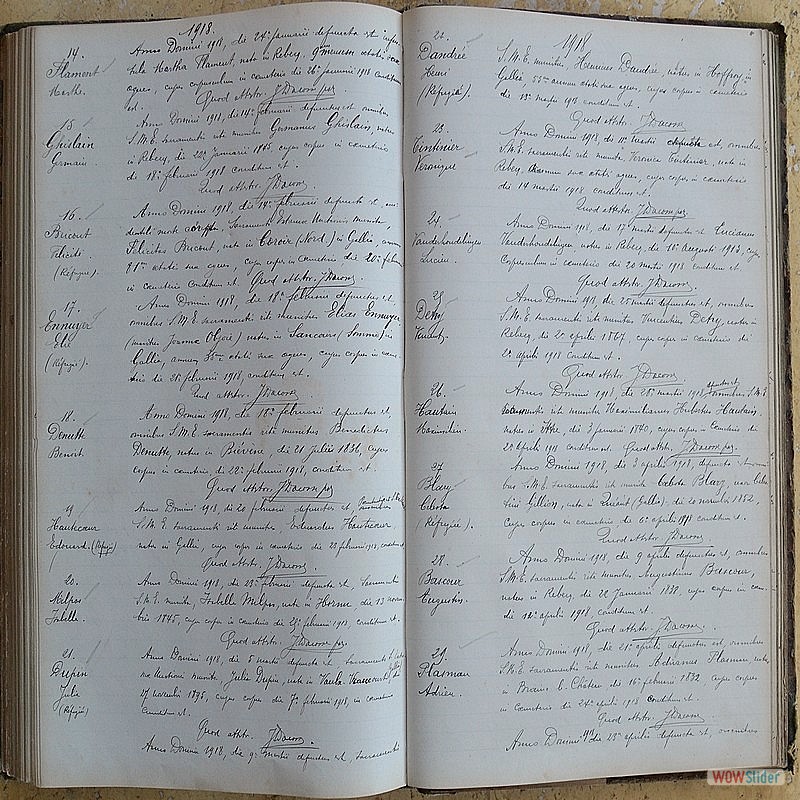 1918.
14.
Flament
Marthe.
Anno Domini 1918, die 24ᵃ januarii defuncta est
Martha Flament, nata in Rebecq,
agens, cujus corpusculum in cæmeterio die 26ᵃ januarii 1918 conditum
est. Quod attestor. J Dacom per
15
Ghislain
Germain.
Anno Domini 1918, die 14ᵃ februarii defunctus est omnibus
S.M.E. sacramentis rite munitus Germanus Ghislain, natus
in Rebecq, die 22ᵃ januarii 1865 cujus corpus in cæmeterio
die 18ᵃ februarii 1918 conditum est.
Quod attestor. J Dacom.
16.
Bricout
Félicité
(Réfugiée).
Anno Domini 1918, die 17ᵃ februarii defuncta est,
Sacramento Extremæ Unctionis munita,
Felicitas Bricout, nata in (Nord) in Gallia, annum
81ᵘᵐ ætatis suæ agens, cujus corpus in cæmeterio die 20ᵃ februarii
in cæmeterio conditum est. Quod attestor. J Dacom.
17.
Ennuyer
Elie
(Réfugié).
Anno Domini 1918, die 18ᵃ februarii defunctus est,
omnibus S.M.E. sacramentis rite munitus Elias Ennuyer
(maritus Joannæ Objoie) natus in Sancourt (Somme) in
Gallia, annum 35ᵘᵐ ætatis suæ agens, cujus corpus in cæme-
terio die 21ᵃ februarii 1918, conditum est.
Quod attestor. J Dacom.
18.
Denutte
Benoit
Anno Domini 1918, die 18ᵃ februarii defunctus est,
omnibus S.M.E. sacramentis rite munitus Benedictus
Denutte, natus in Bievene, die 21 julii 1836, cujus
corpus in cæmeterio, die 22ᵃ februarii 1918, conditum est.
Quod attestor. J Dacom per
19
Hautecœur
Edouard. (Réfugié)
Anno Domini 1918, die 20 februarii defunctus est,
S.M.E. sacramentis rite munitus Eduardus Hautecœur,
natus in Gallia, cujus corpus in cæmeterio die 23 februarii 1918, conditum est
Quod attestor. J Dacom.
20.
Melpas
Isabelle.
Anno Domini 1918, die 23ᵃ februarii, defuncta est, Sacramentis
S.M.E. munita, Isabella Melpas, nata in Hornu die 13 novem-
bris 1845, cujus corpus in cæmeterio die 27ᵃ februarii 1918, conditum est.
Quod attestor. J Dacom per
21.
Dupin
Julie
(Réfugiée)
Anno Domini 1918, die 5 martii defuncta est, Sacramento
Unctionis munita, Julia Dupin, nata in
17 novembris 1895, cujus corpus die 7ᵃ februarii 1918, in cæmeterio
conditum est.
Quod attestor. J Dacom.
Anno Domini 1918, die 9ᵃ martii defunctus est, sacramentis
1918
22.
Dandrée
Henri
(Réfugié).
S.M.E. munitus, Henricus Dandrée, natus in
Gallia, 55ᵘᵐ annum ætatis suæ agens, cujus corpus in cæmeterio
die 13ᵃ martii 1918 conditum est.
Quod attestor. J Dacom
23.
Tintinier
Véronique
Anno Domini 1918, die 11ᵃ martii defuncta est, omnibus
S.M.E. sacramentis rite munita Veronica Tintinier, nata in
Rebecq, annum suæ ætatis agens, cujus corpus in cæmeterio
die 14 martii 1918 conditum est.
Quod attestor. J Dacom per.
24.
Vanderhoudelingen
Lucien.
Anno Domini 1918, die 17ᵃ martii defunctus est Lucianus
Vanderhoudelingen, natus in Rebecq, die 16ᵃ augusti 1913, cujus
corpusculum in cæmeterio die 20 martii 1918 conditum est.
Quod attestor. J Dacom.
25
Detry
Vincent.
Anno Domini 1918, die 25 martii defunctus est, omnibus
S.M.E. sacramentis rite munitus Vincentius Detry, natus in
Rebecq, die 20 aprilis 1867, cujus corpus in cæmeterio die
2ᵃ aprilis 1918 conditum est.
Quod attestor. J Dacom.
26.
Hautain
Maximilien.
Anno Domini 1918, die 28ᵃ martii 1918 defunctus est, omnibus S.M.E
sacramentis rite munitus Maximilianus Hubertus Hautain,
natus in Ittre, die 3 januarii 1840, cujus corpus in cæmeterio die
2ᵃ aprilis 1918 conditum est. Quod attestor. J Dacom per.
27
Blary
Céleste
(Réfugiée).
Anno Domini 1918, die 3 aprilis 1918, defuncta est omni-
bus S.M.E. sacramentis rite munita Celesta Blary,
Gillion, nata in Quiévy (Gallia) die 20 novembris 1852,
cujus corpus in cæmeterio die 6ᵃ aprilis 1918 conditum est.
Quod attestor. J Dacom.
28.
Bascour
Augustin.
Anno Domini 1918, die 9 aprilis defunctus est, omnibus
S.M.E. sacramentis rite munitus Augustinus Bascour,
natus in Rebecq, die 22 januarii 1838, cujus corpus in cæm.
die 12ᵃ aprilis 1918 conditum est.
Quod attestor. J Dacom.
29.
Plasman
Adrien.
Anno Domini 1918, die 21ᵃ aprilis defunctus est, omnibus
S.M.E. sacramentis rite munitus Adrianus Plasman, natus
in Braine l. Château, die 16ᵃ februarii 1832 cujus corpus
in cæmeterio die 24ᵃ aprilis 1918 conditum est.
Quod attestor. J Dacom.
Anno Domini 1918 die 23ᵃ aprilis defunctus est, omnibus
WOWSlider